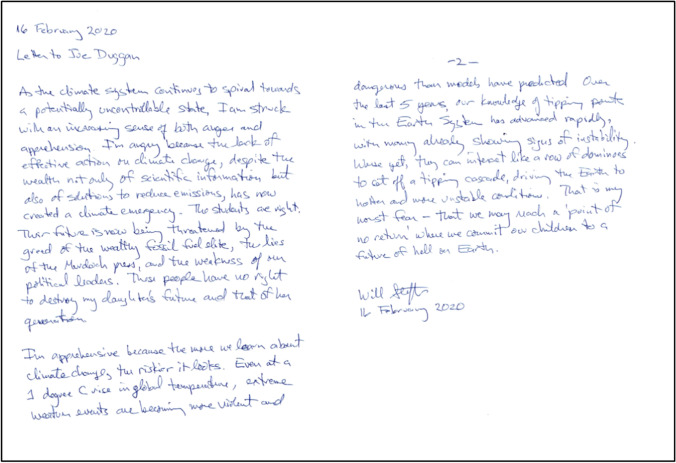 16 February 2020
Letter to Joe Duggan
As the climate system continues to spiral towards
a potentially uncontrollable state, I am struck
with an increasing sense of both anger and
apprehension. I'm angry because the lack of
effective action on climate change, despite the
wealth not only of scientific information but
also of solutions to reduce emissions, has now
created a climate emergency. The students are right.
Their future is now being threatened by the
greed of the wealthy fossil fuel elite, the lies
of the Murdoch press, and the weakness of our
political leaders. These people have no right
to destroy my daughter's future and that of her
generation
I'm apprehensive because the more we learn about
climate change, the riskier it looks. Even at a
1 degree C rise in global temperature, extreme
weather events are becoming more violent and
-2-
dangerous than models have predicted. Over
the last 5 years, our knowledge of tipping points
in the Earth System has advanced rapidly,
with many already showing signs of instability.
Worse yet, they can interact like a row of dominoes
to set off a tipping cascade, driving the Earth to
hotter and more unstable conditions. That is my
worst fear - that we may reach a 'point of
no return' where we commit our children to a
future of hell on Earth.
Will Steffen
16 February 2020